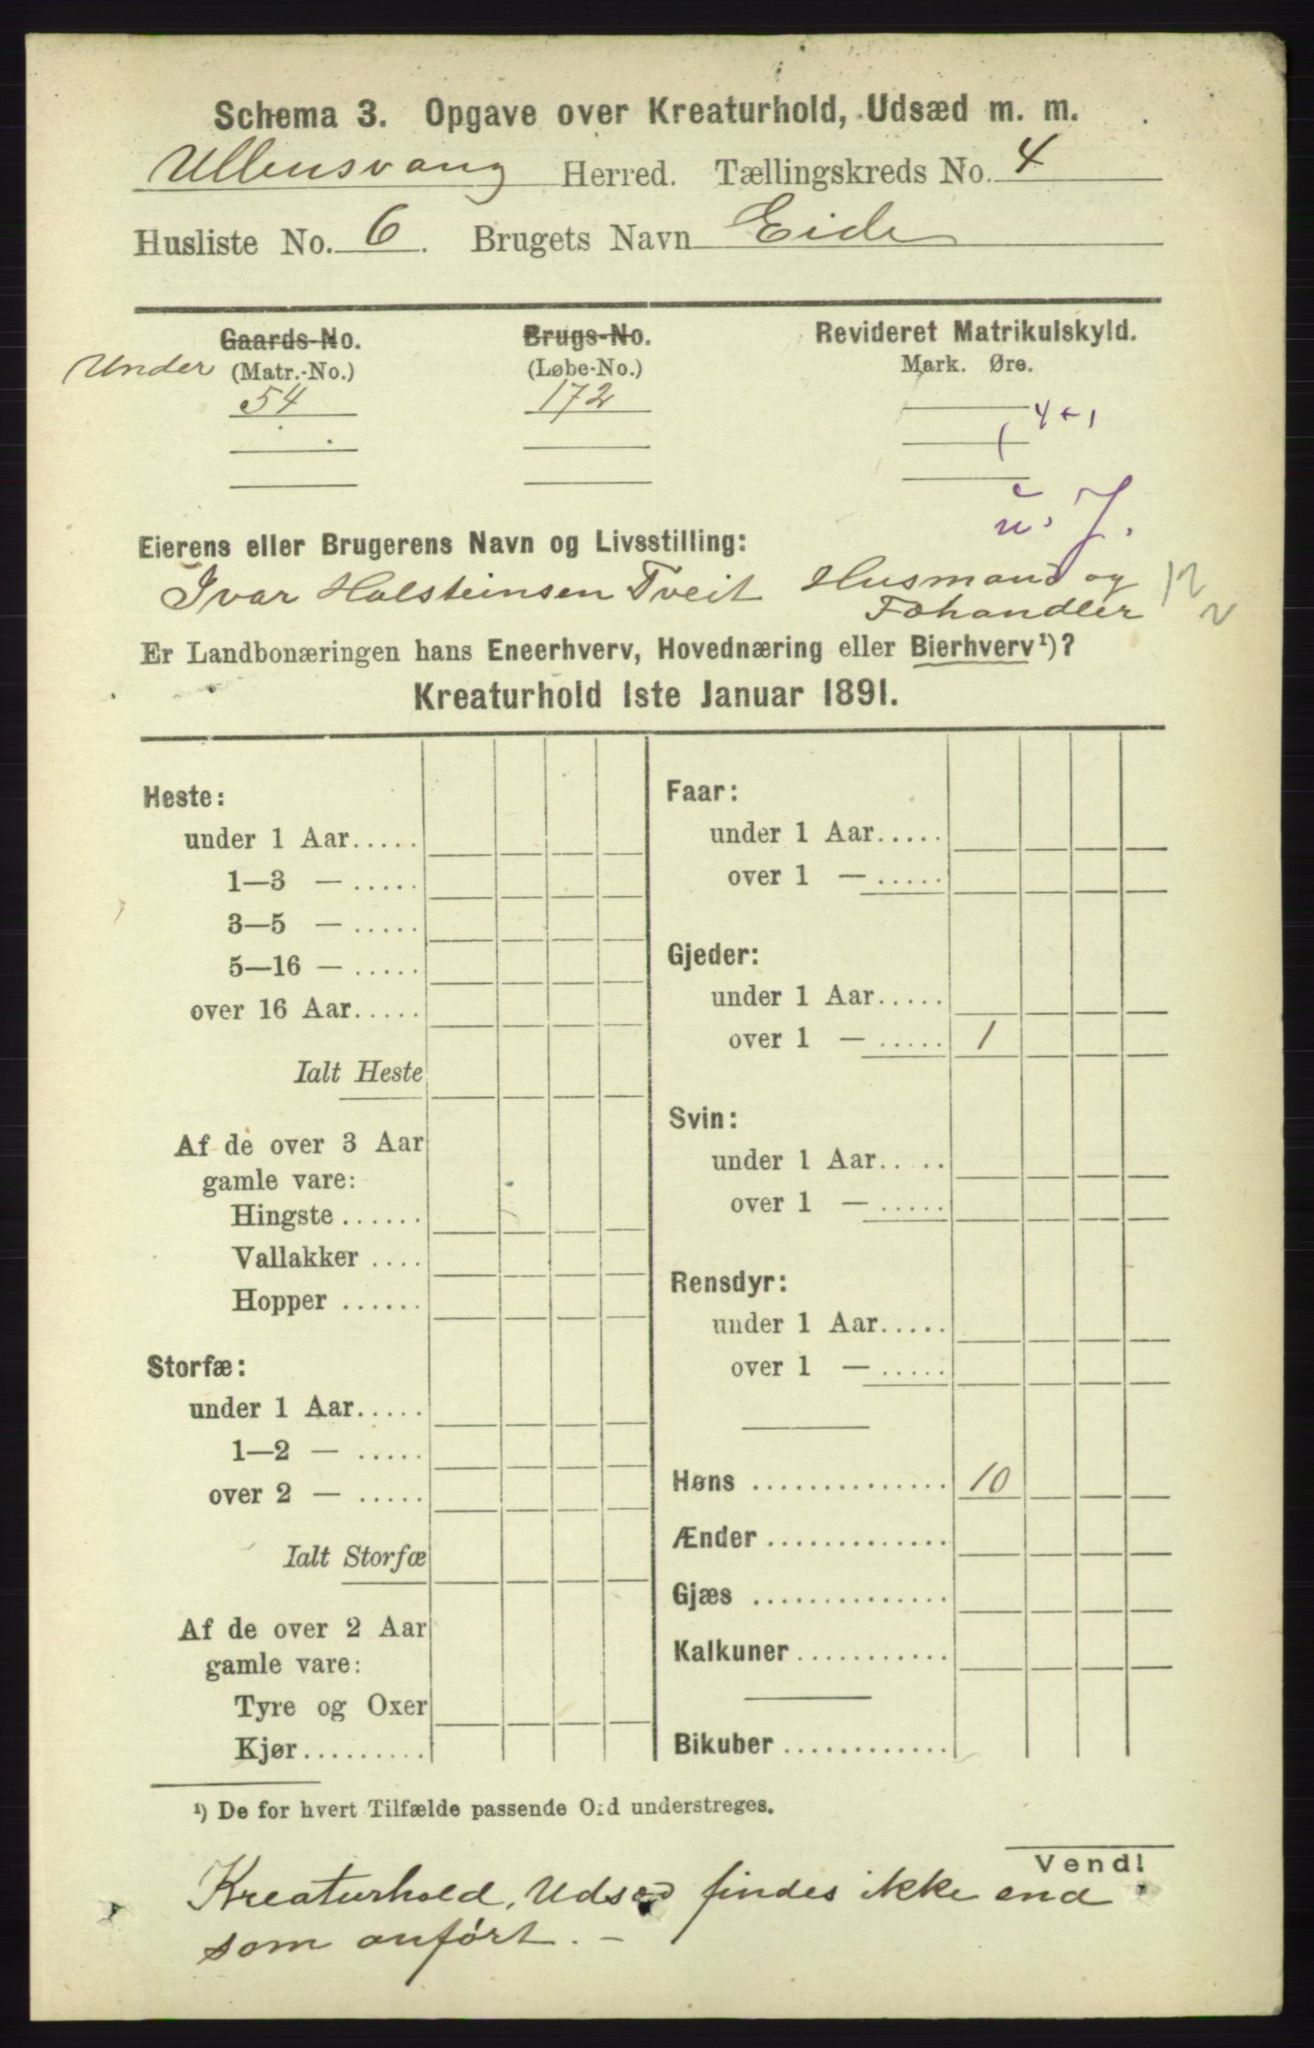 Schema 3. Opgave over Kreaturhold, Udsæd m. m.
Ullensvang Herred. Tællingskreds No. 4
Husliste No. 6. Brugets Navn Eide
Gaards-No. Brugs-No. Revideret Matrikulskyld.
Under (Matr.-No.) (Løbe-No.) Mark. Øre.
54 172
4 + 1
u. J.
Eierens eller Brugerens Navn og Livsstilling:
Ivar Holsteinsen Tveit Husmand og
Fæhandler
Er Landbonæringen hans Eneerhverv, Hovednæring eller Bierhverv¹)?
Kreaturhold 1ste Januar 1891.
Heste:
under 1 Aar.....
1—3 — .....
3—5 — .....
5—16 — .....
over 16 Aar.....
Ialt Heste
Af de over 3 Aar
gamle vare:
Hingste ......
Vallakker ....
Hopper ......
Storfæ:
under 1 Aar.....
1—2 — .....
over 2 — .....
Ialt Storfæ
Af de over 2 Aar
gamle vare:
Tyre og Oxer
Kjør..........
Faar:
under 1 Aar.....
over 1 — .....
Gjeder:
under 1 Aar.....
over 1 — ..... 1
Svin:
under 1 Aar.....
over 1 — .....
Rensdyr:
under 1 Aar.....
over 1 — .....
Høns .............. 10
Ænder .............
Gjæs ..............
Kalkuner ...........
Bikuber ............
¹) De for hvert Tilfælde passende Ord understreges.
Vend!
Kreaturhold, Udsæd findes ikke end
som anført. —